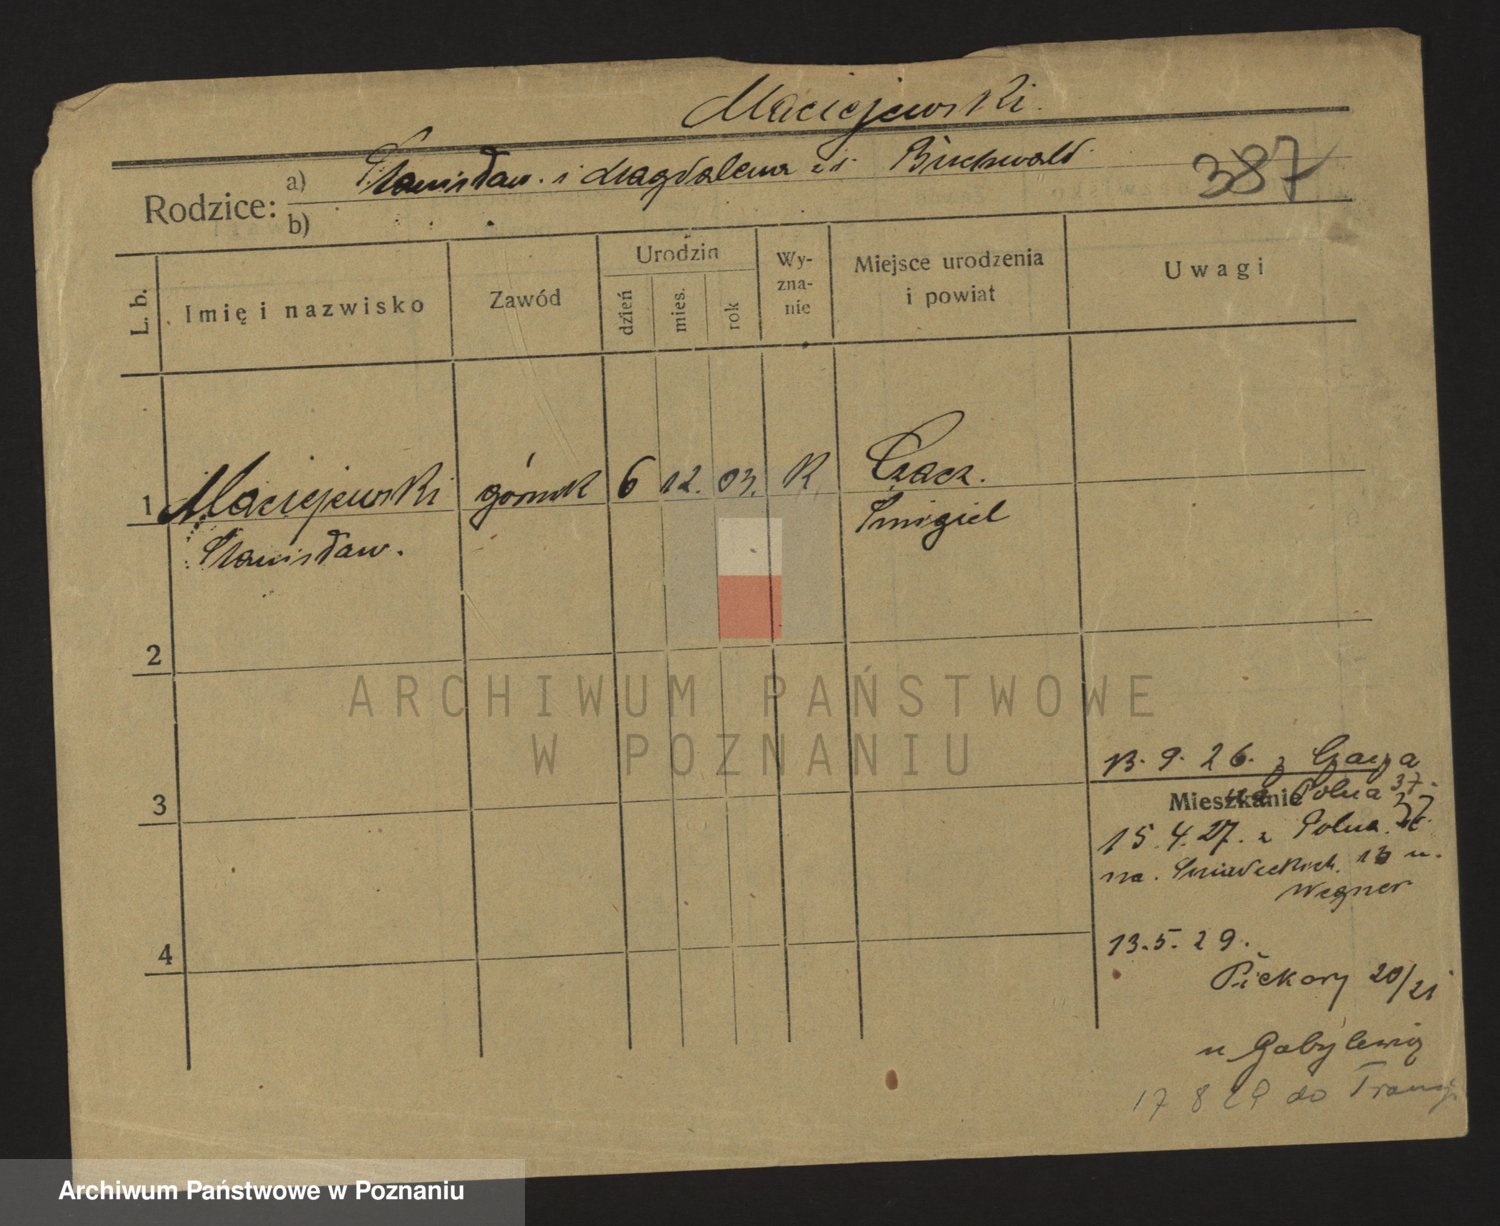 Maciejewski.
387
Rodzice:
a) Stanisław i Magdalena zd Buchwald
b)
L. b.
Imię i nazwisko
Zawód
Urodzin
dzień
mies.
rok
Wy-
zna-
nie
Miejsce urodzenia
i powiat
Uwagi
1 Maciejewski górnik 6 12. 03. K. Czacz.
Stanisław. Śmigiel
2
3
4
13. 9. 26. z Czacza
Mieszkanie
na Polna 37.
15. 4. 27. z Polna 37
na Śniadeckich 13 u.
Wegner
13. 5. 29.
Piekary 20/21
u
17 8 29 do Francji
ARCHIWUM PAŃSTWOWE
W POZNANIU
Archiwum Państwowe w Poznaniu